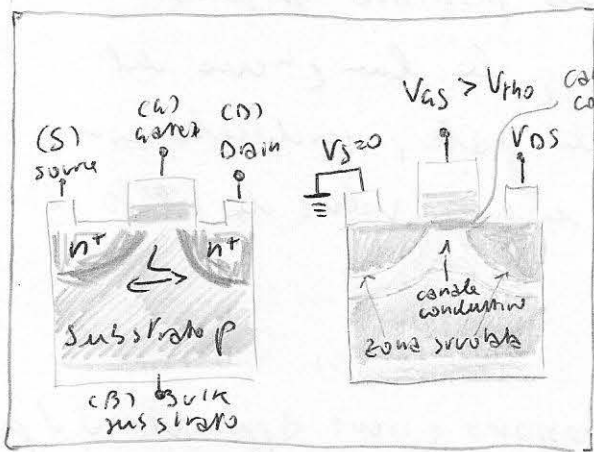 (S)
source
(G)
gate
(D)
Drain
n+
n+
L
Substrato p
(B) Bulk
substrato
VGS > Vtho
VS=0
VDS
canale
conduttivo
zona svuotata